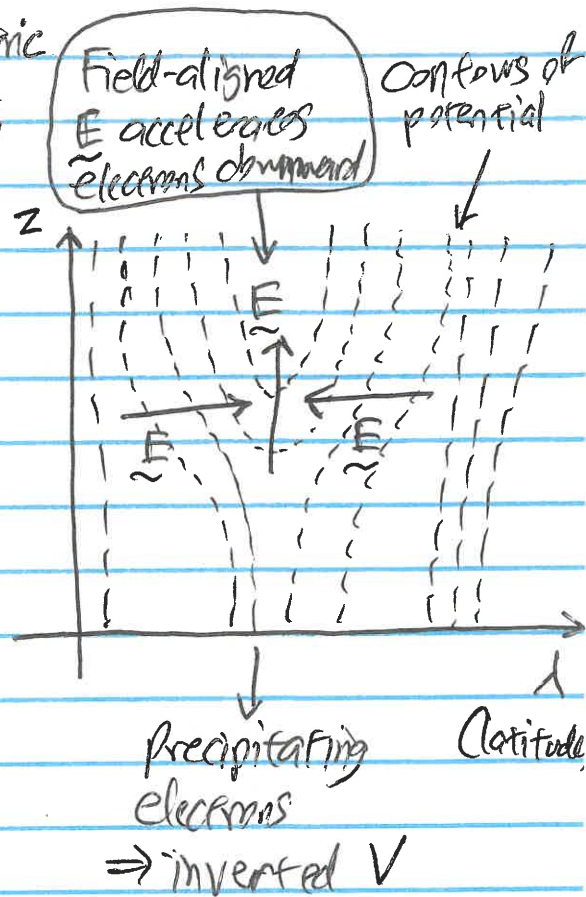 Field-aligned
E accelerates
electrons downward
contours of
potential
z
E
E
E
λ
precipitating
electrons
⇒ inverted V
(latitude